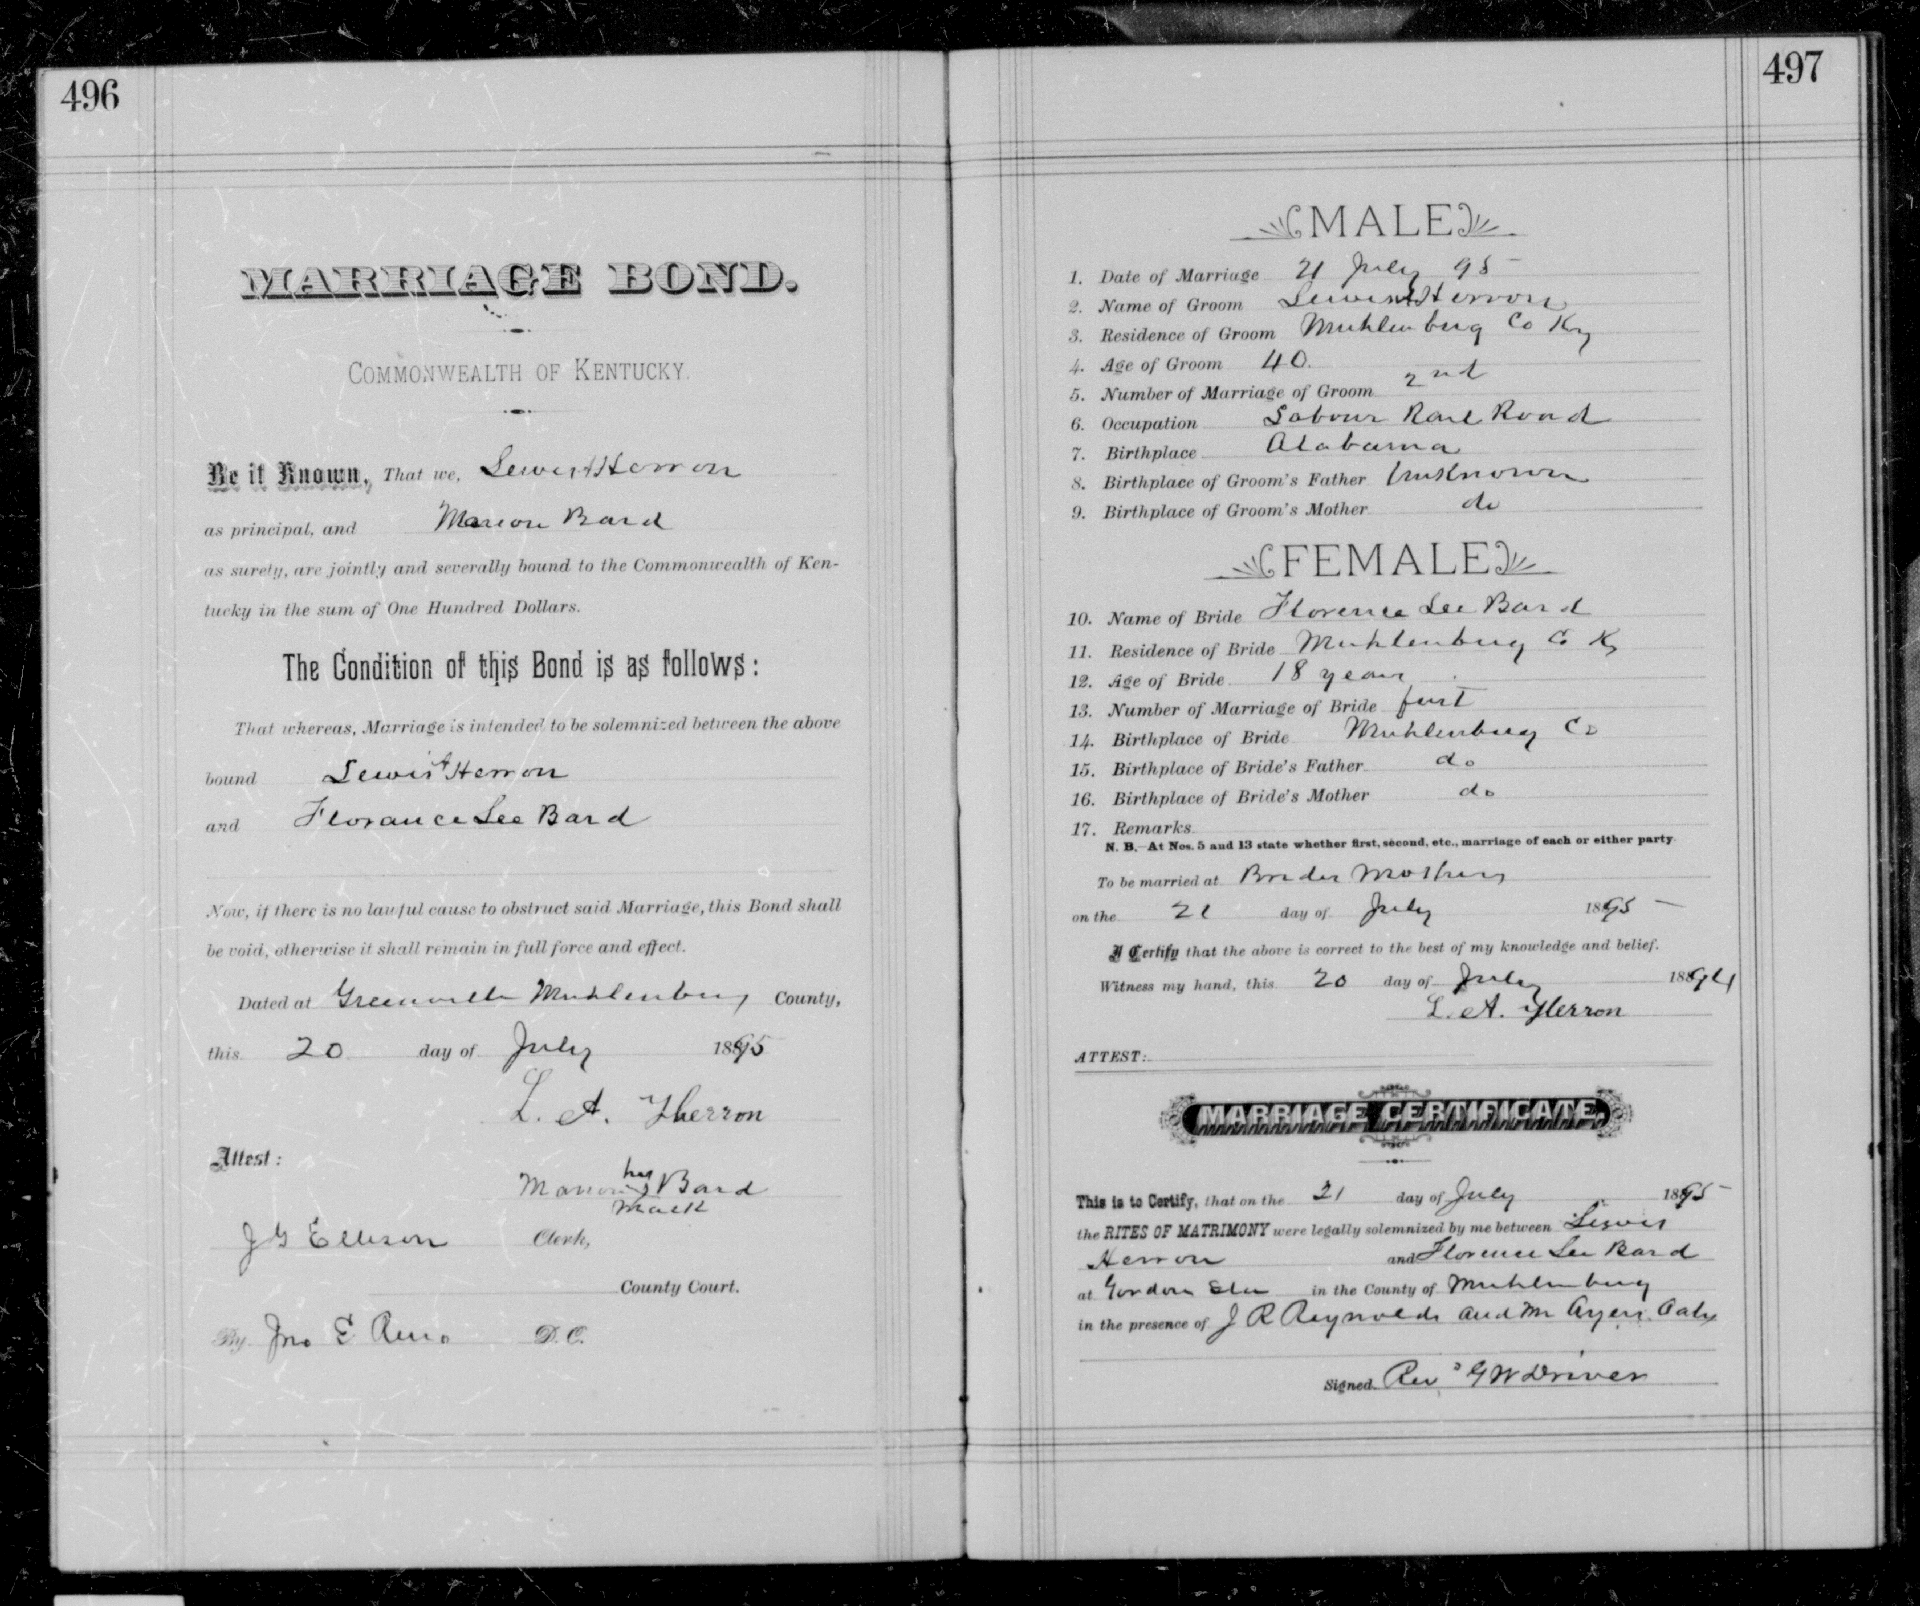 496
MARRIAGE BOND.
COMMONWEALTH OF KENTUCKY.
Be it Known, That we, Lewis A Herron
as principal, and Marion Bard
as surety, are jointly and severally bound to the Commonwealth of Ken-
tucky in the sum of One Hundred Dollars.
The Condition of this Bond is as follows:
That whereas, Marriage is intended to be solemnized between the above
bound Lewis A Herron
and Florance Lee Bard
Now, if there is no lawful cause to obstruct said Marriage, this Bond shall
be void, otherwise it shall remain in full force and effect.
Dated at Greenville Muhlenburg County,
this 20 day of July 1895
L. A. Herron
Attest:
his
Marion x Bard
mark
J G Ellison Clerk,
County Court.
By Jno E Reno D. C.
497
MALE
1. Date of Marriage 21 July 95
2. Name of Groom Lewis A Herron
3. Residence of Groom Muhlenburg Co Ky
4. Age of Groom 40
5. Number of Marriage of Groom 2nd
6. Occupation Labour Rail Road
7. Birthplace Alabama
8. Birthplace of Groom's Father Unknown
9. Birthplace of Groom's Mother do
FEMALE
10. Name of Bride Florence Lee Bard
11. Residence of Bride Muhlenburg Co Ky
12. Age of Bride 18 years
13. Number of Marriage of Bride first
14. Birthplace of Bride Muhlenburg Co
15. Birthplace of Bride's Father do
16. Birthplace of Bride's Mother do
17. Remarks
N. B.—At Nos. 5 and 13 state whether first, second, etc., marriage of each or either party
To be married at Brides Mothers
on the 21 day of July 1895
I Certify that the above is correct to the best of my knowledge and belief.
Witness my hand, this 20 day of July 1894
L. A. Herron
ATTEST:
MARRIAGE CERTIFICATE.
This is to Certify, that on the 21 day of July 1895
the RITES OF MATRIMONY were legally solemnized by me between Lewis
Herron and Florence Lee Bard
at Gordon in the County of Muhlenburg
in the presence of J R Reynolds and M Ayers
Signed Rev G W Driver